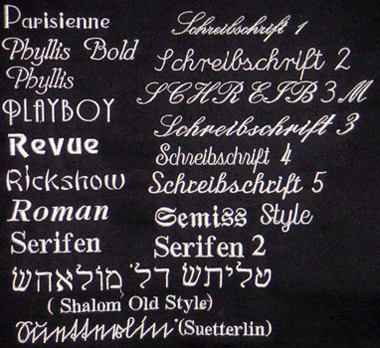 Parisienne
Phyllis Bold
Phyllis
PLAYBOY
Revue
Rickshow
Roman
Serifen
Schreibschrift 1
Schreibschrift 2
SCHREIB 3.M
Schreibschrift 3
Schreibschrift 4
Schreibschrift 5
Semiss Style
Serifen 2
(Shalom Old Style)
Suetterlin (Suetterlin)